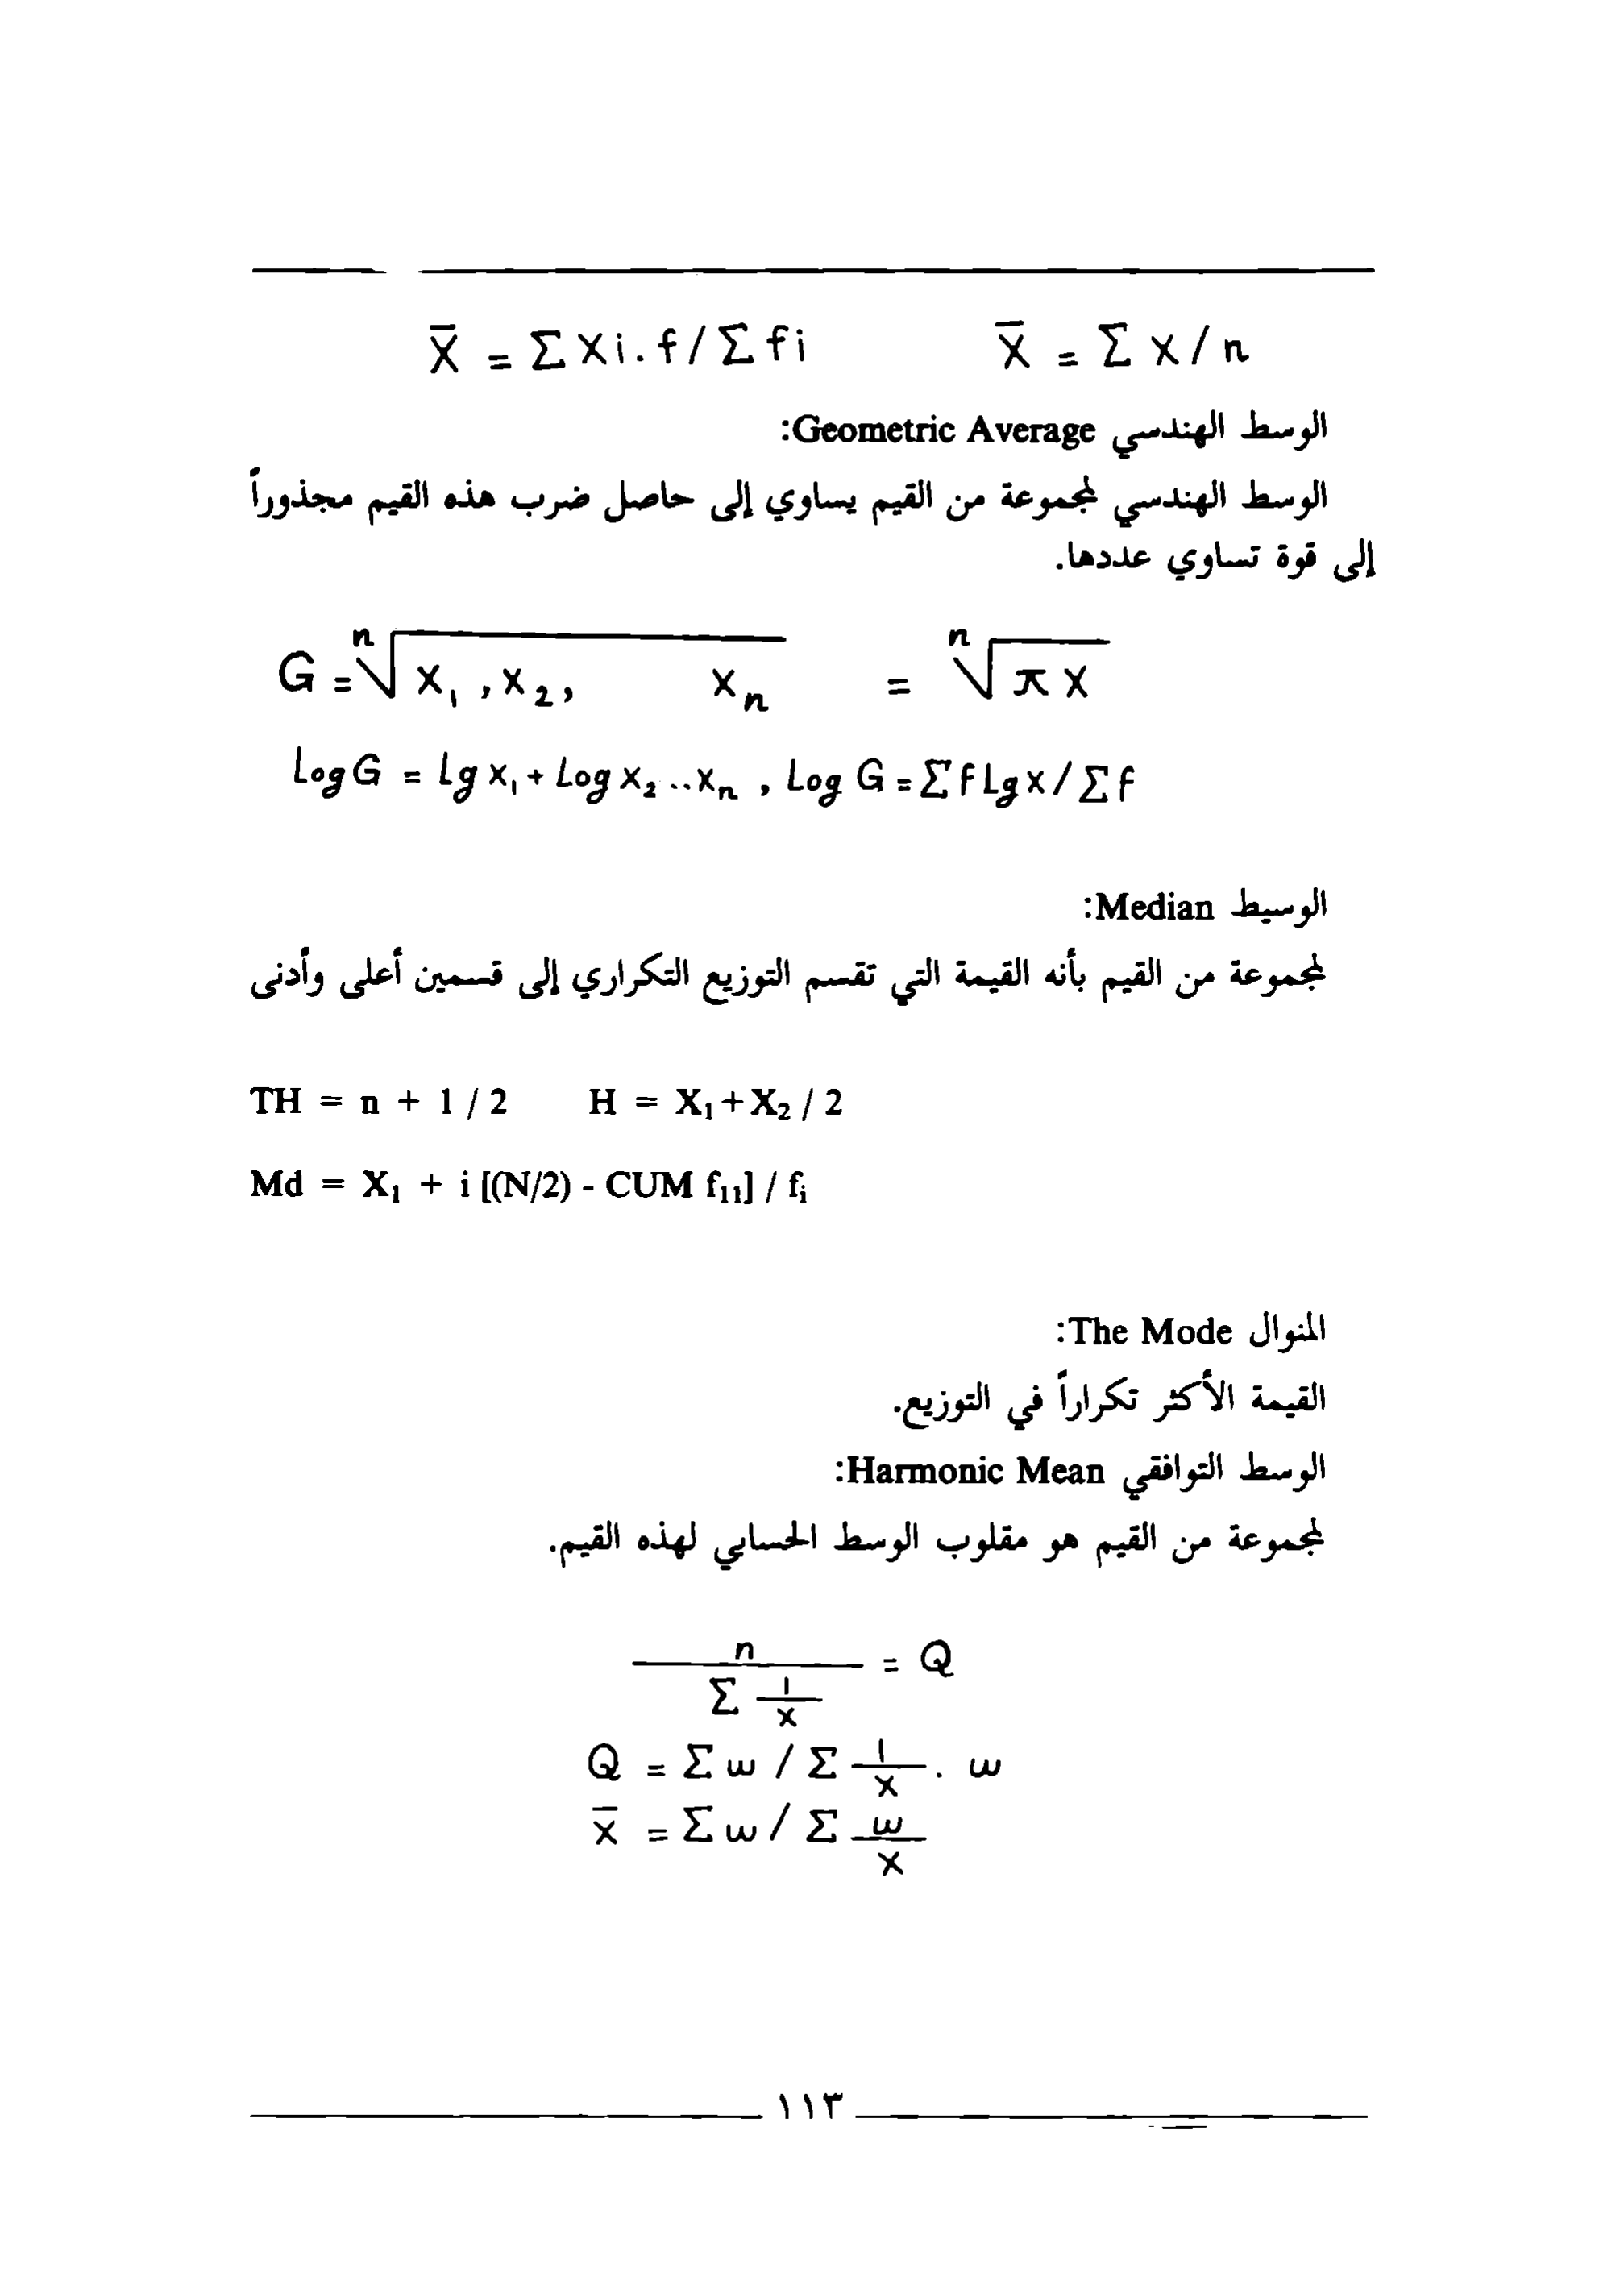 X̄ = Σ Xi . f / Σ fi X̄ = Σ x / n
الوسط الهندسي Geometric Average:
الوسط الهندسي لمجموعة من القيم يساوي إلى حاصل ضرب هذه القيم مجذوراً
إلى قوة تساوي عددها.
G = ⁿ√ x₁ , x₂ , xₙ = ⁿ√ π x
Log G = Lg x₁ + Log x₂ .. xₙ , Log G = Σ f Lg x / Σ f
الوسيط Median:
لمجموعة من القيم بأنه القيمة التي تقسم التوزيع التكراري إلى قسمين أعلى وأدنى
TH = n + 1 / 2 H = X₁+X₂ / 2
Md = X₁ + i [(N/2) - CUM f₁₁] / fᵢ
المنوال The Mode:
القيمة الأكثر تكراراً في التوزيع.
الوسط التوافقي Harmonic Mean:
لمجموعة من القيم هو مقلوب الوسط الحسابي لهذه القيم.
n / Σ 1/x = Q
Q = Σ w / Σ 1/x . w
x̄ = Σ w / Σ w/x
١١٣